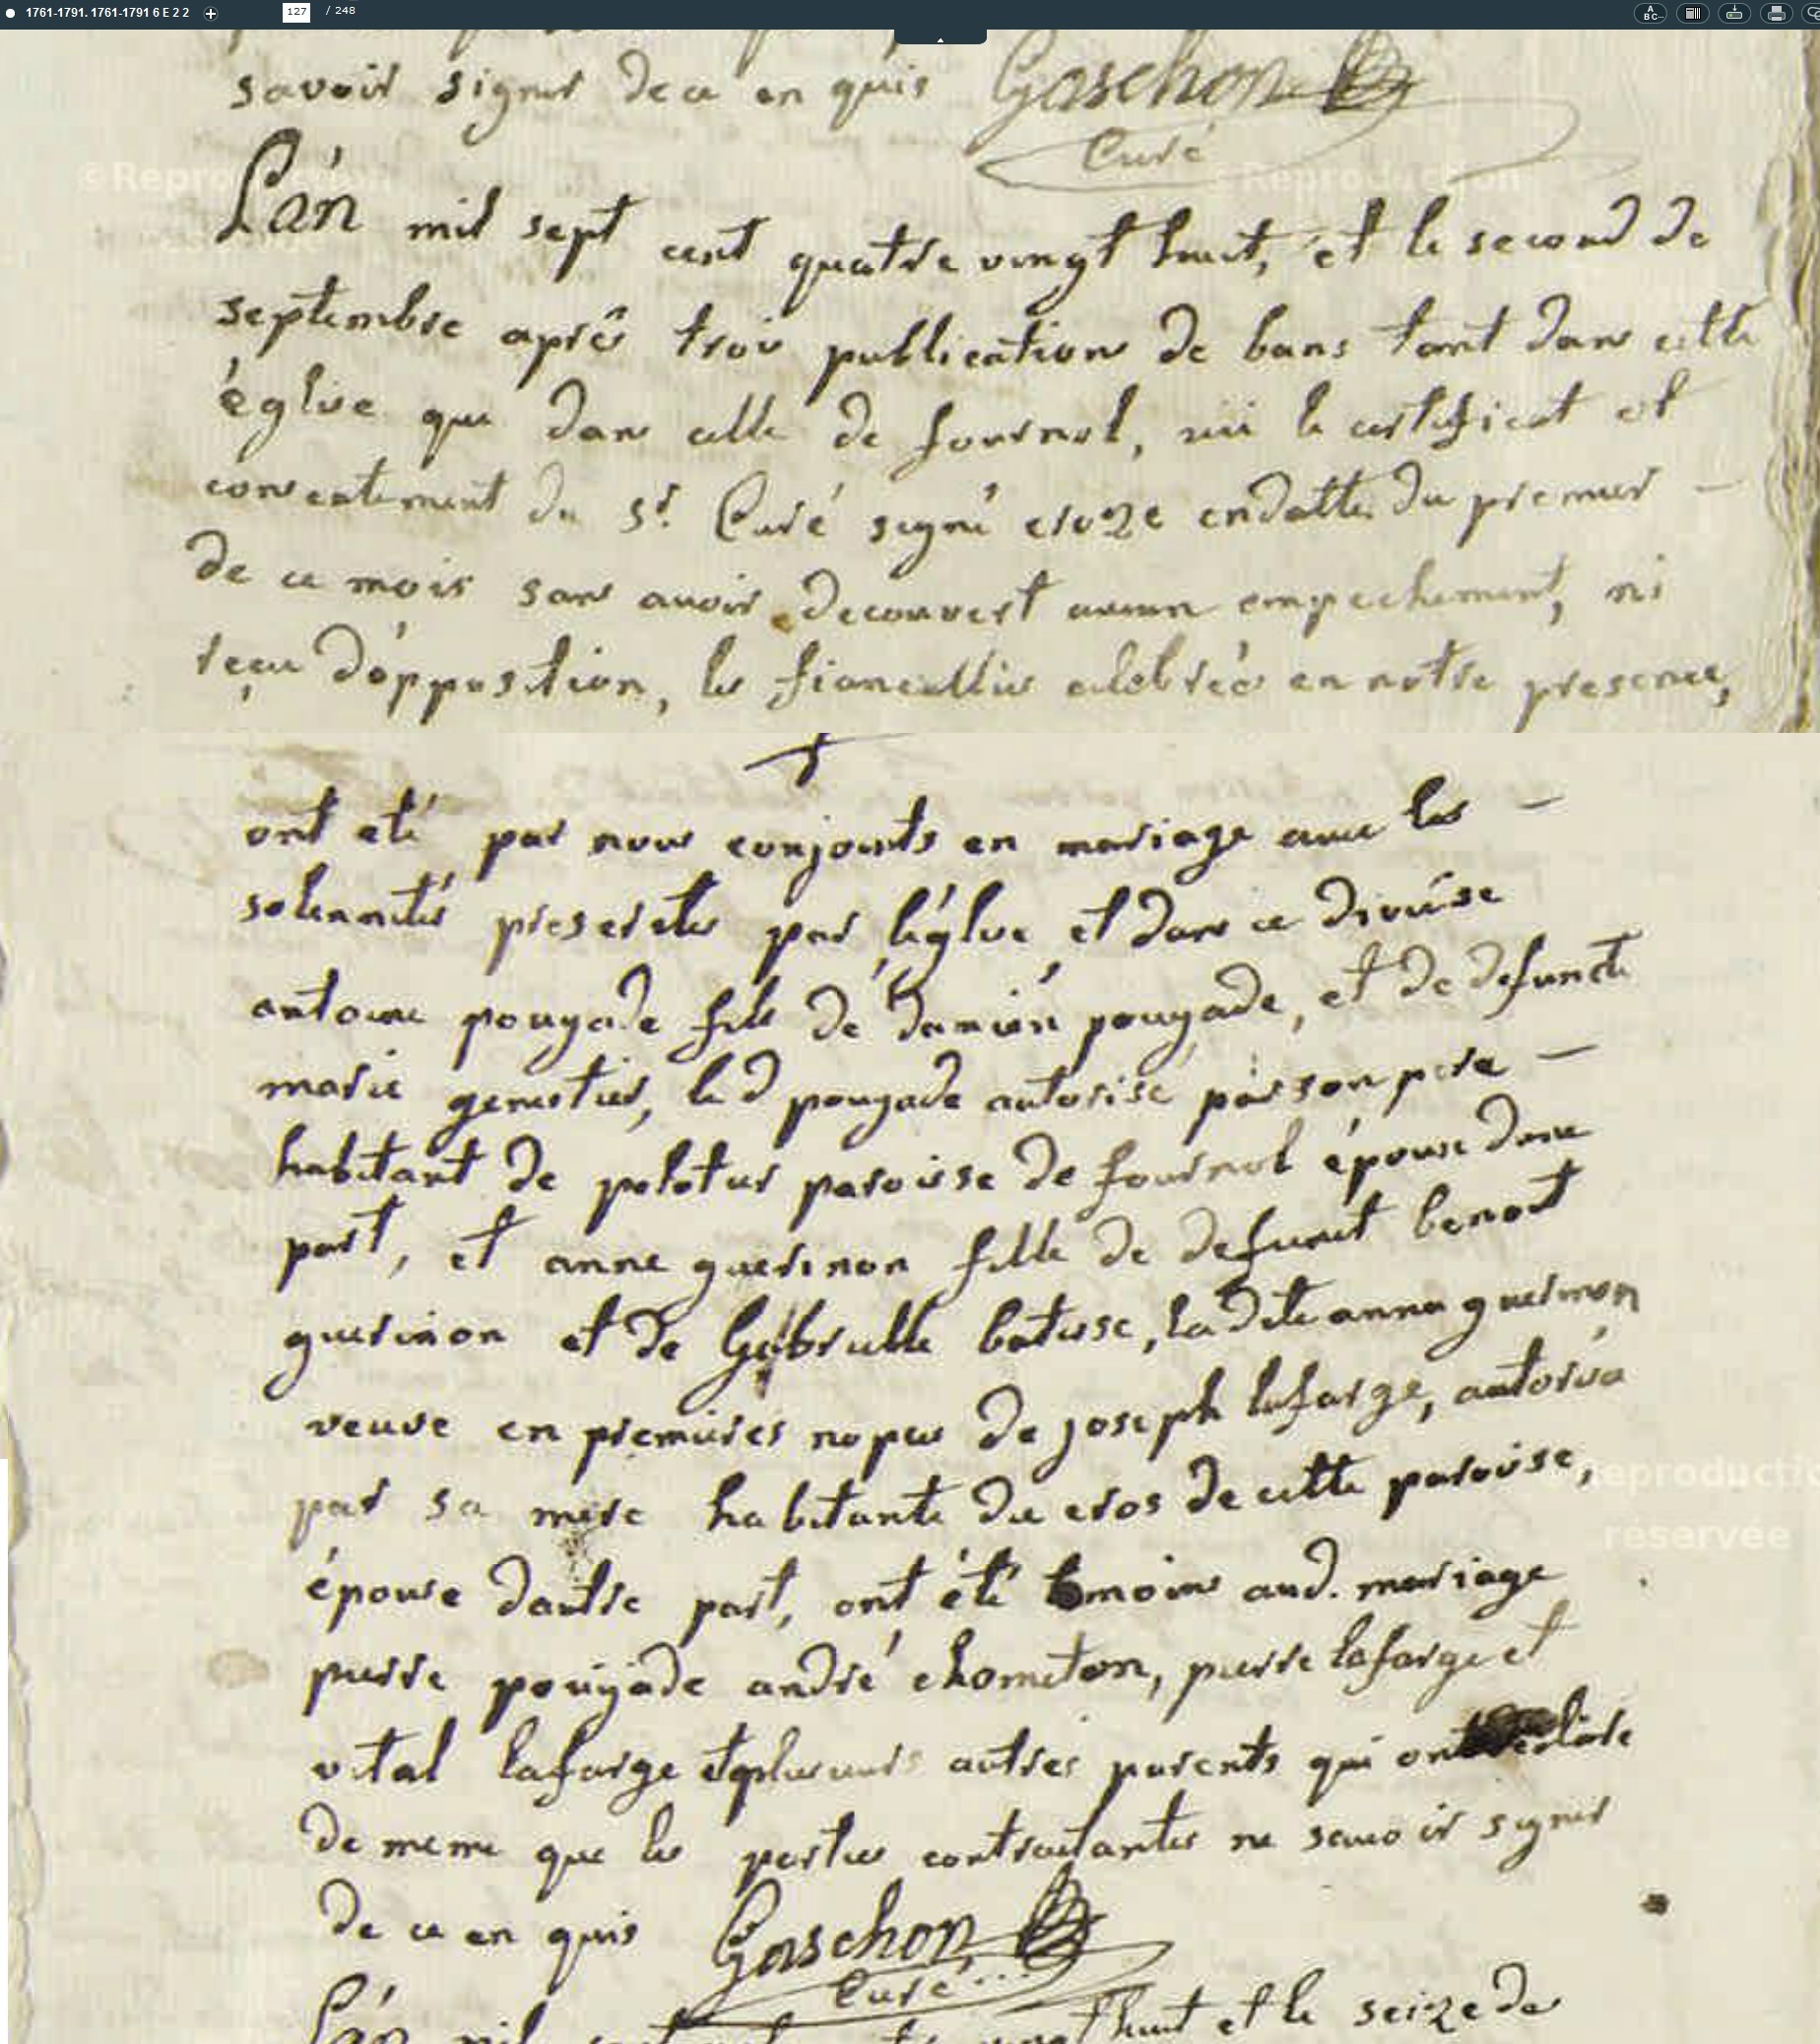 1761-1791. 1761-1791 6 E 2 2
127 / 248
savoir signer de ce en quis Gaschon
Curé
©Reproduction Reproduction
L'an mil sept cent quatre vingt huit, et le second de
septembre aprés trois publications de bans tant dans cette
église que dans celle de fournol, vû le certificat et
consentement du Sr. Curé signé croze endatte du premier —
de ce mois sans avoir decouvert aucun empechement, ni
reçu d'opposition, les fiancallies celebrées en notre presence,
ont eté par nous conjoints en mariage avec les —
solennités prescrites par l'églue et dans ce diocése
antoine pouyade fils de damien pouyade, et de defuncte
marie genestier, led pouyade autorisé par son pere —
habitant de polotier paroisse de fournol épouse dune
part, et anne guerinon fille de defunct benoit
guerinon et de Gabrielle batisse, la dite anne guerinon
veuve en premieres nopces de joseph lafarge, autorisa
par sa mere habitante du cros de cette paroisse,
épouse dautre part, ont été temoins aud. mariage
pierre pouyade andré chometon, pierre lafarge et
vital lafarge et plusieurs autres parents qui ont declare
de meme que les parties contractantes ne savoir signer
de ce en quis Gaschon
Curé
eproducti
réservée
L'an mil sept vingt huit et le seize de